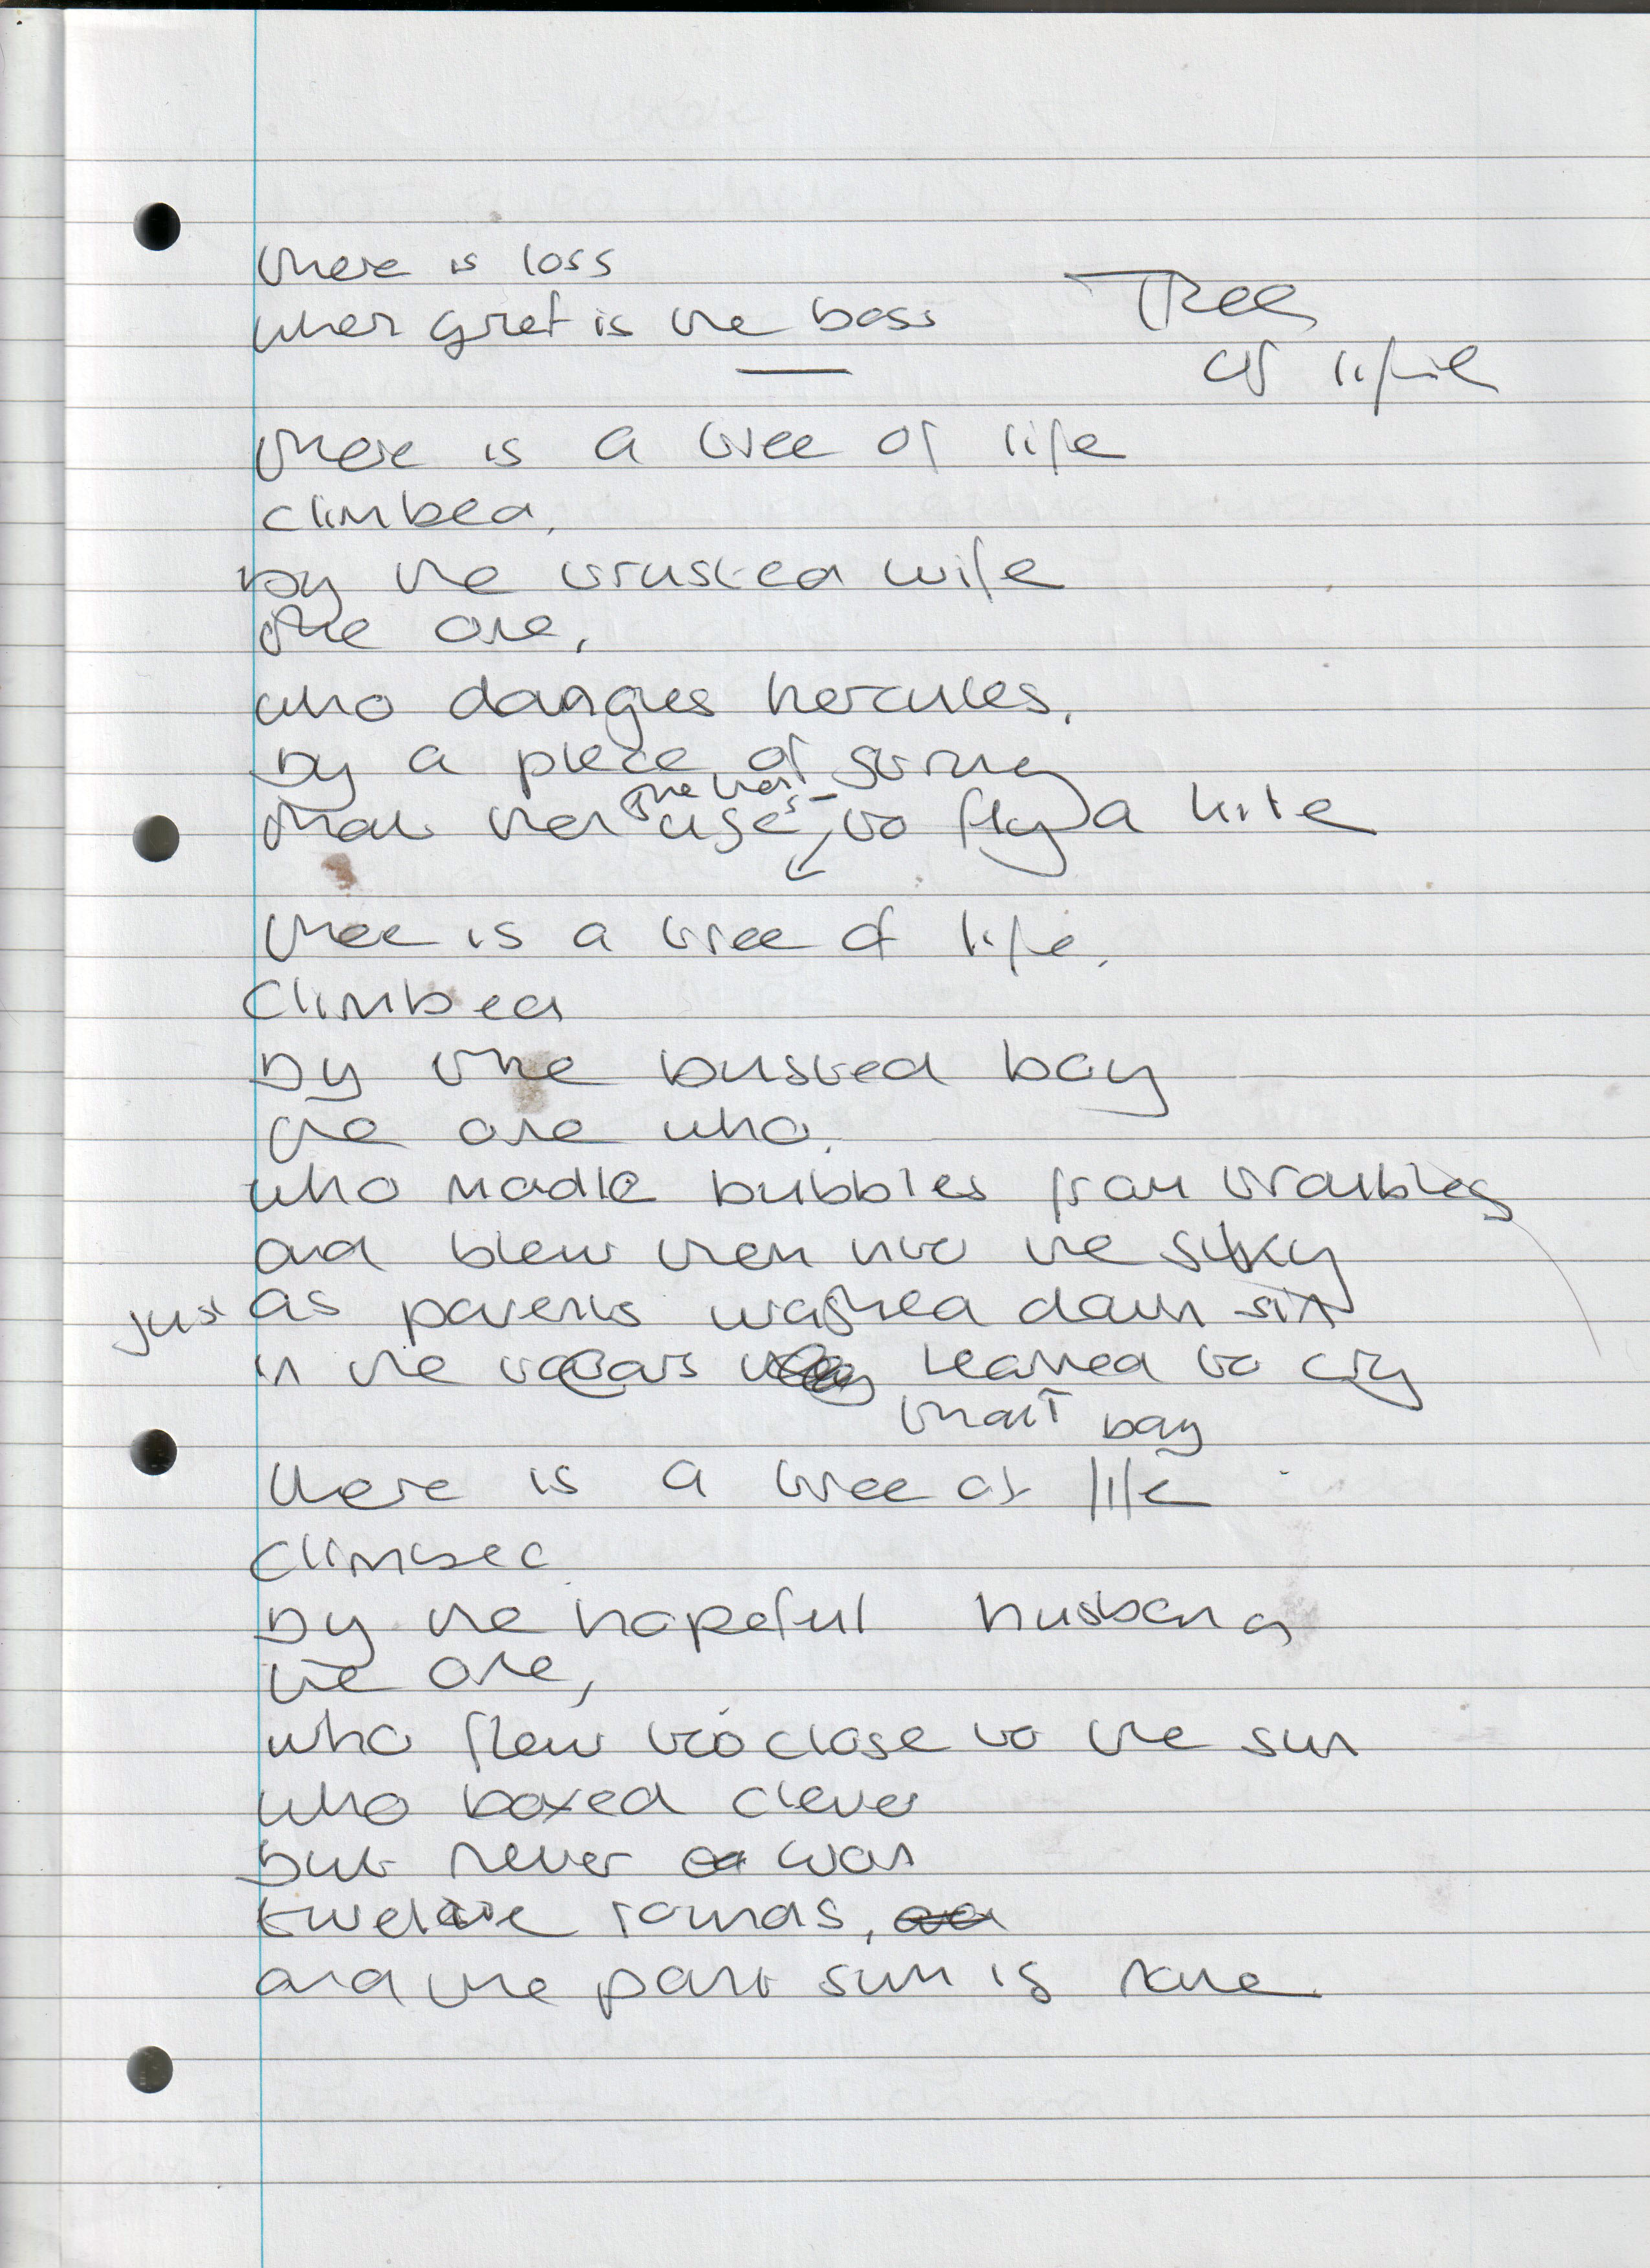 there is loss
when grief is the boss
Tree
of life
there is a tree of life
climbed,
by the trusted wife
the one,
who dangles hercules,
by a piece of string
that her uses to fly a kite
there is a tree of life,
Climbed
by the busted boy
the one who,
who made bubbles from troubles
and blew them into the sky
just as parents washed down sin
in the learned to cry
that boy
there is a tree of life
Climbed
by the hopeful husband
the one,
who flew too close to the sun
who boxed clever
but never won
twelve rounds,
and the part sum is none